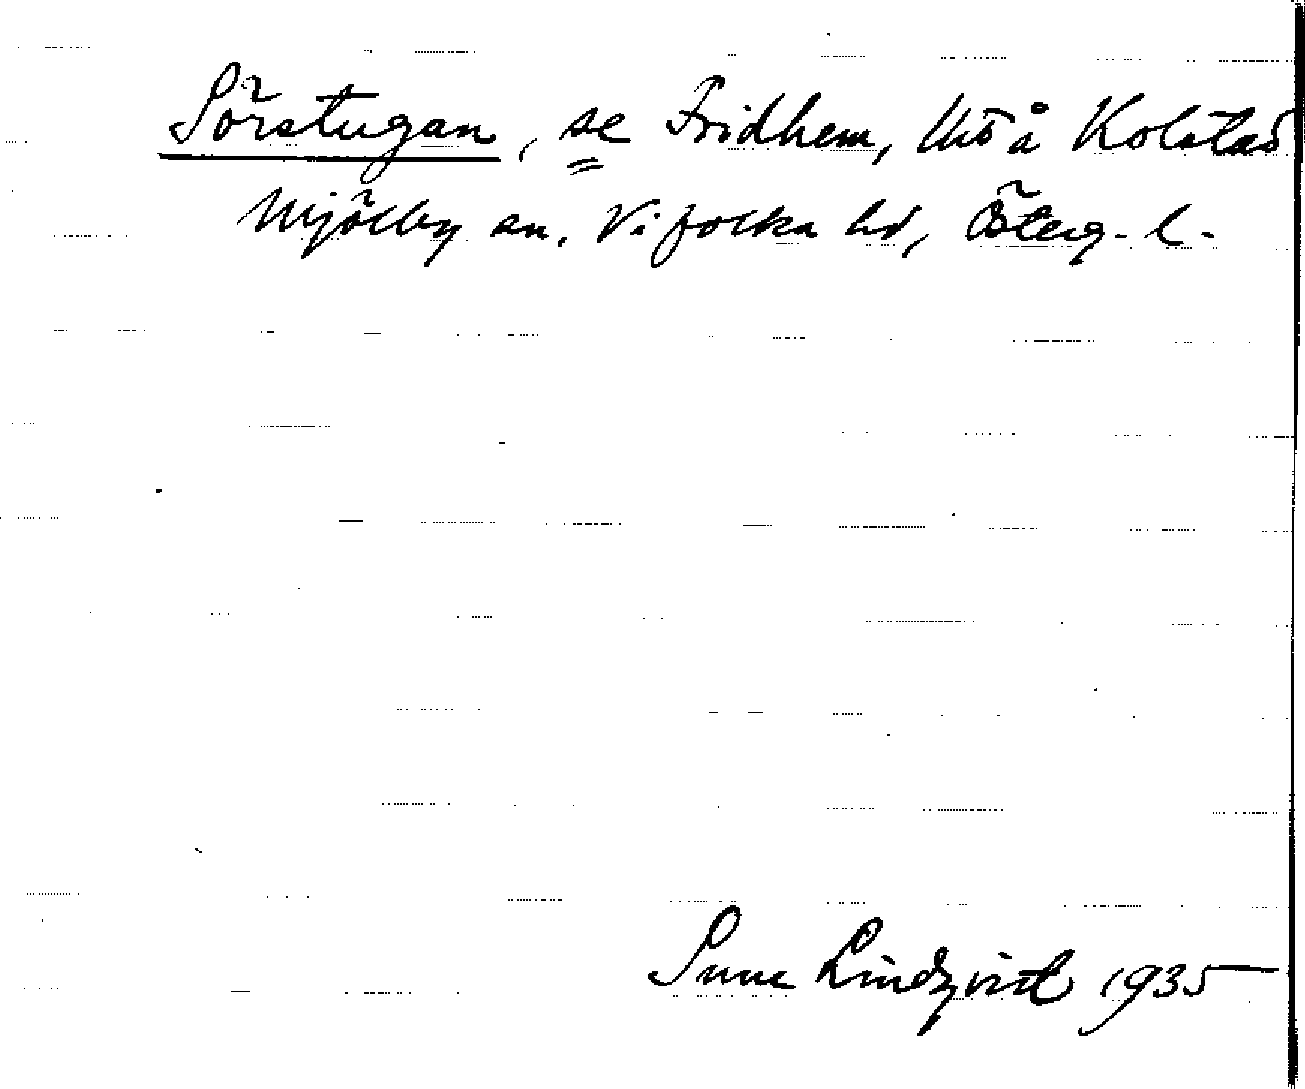 Sörstugan, se Fridhem, å Kolstad
Mjölby sn, Vifolka hd, Österg. l.
Sune Lindqvist 1935